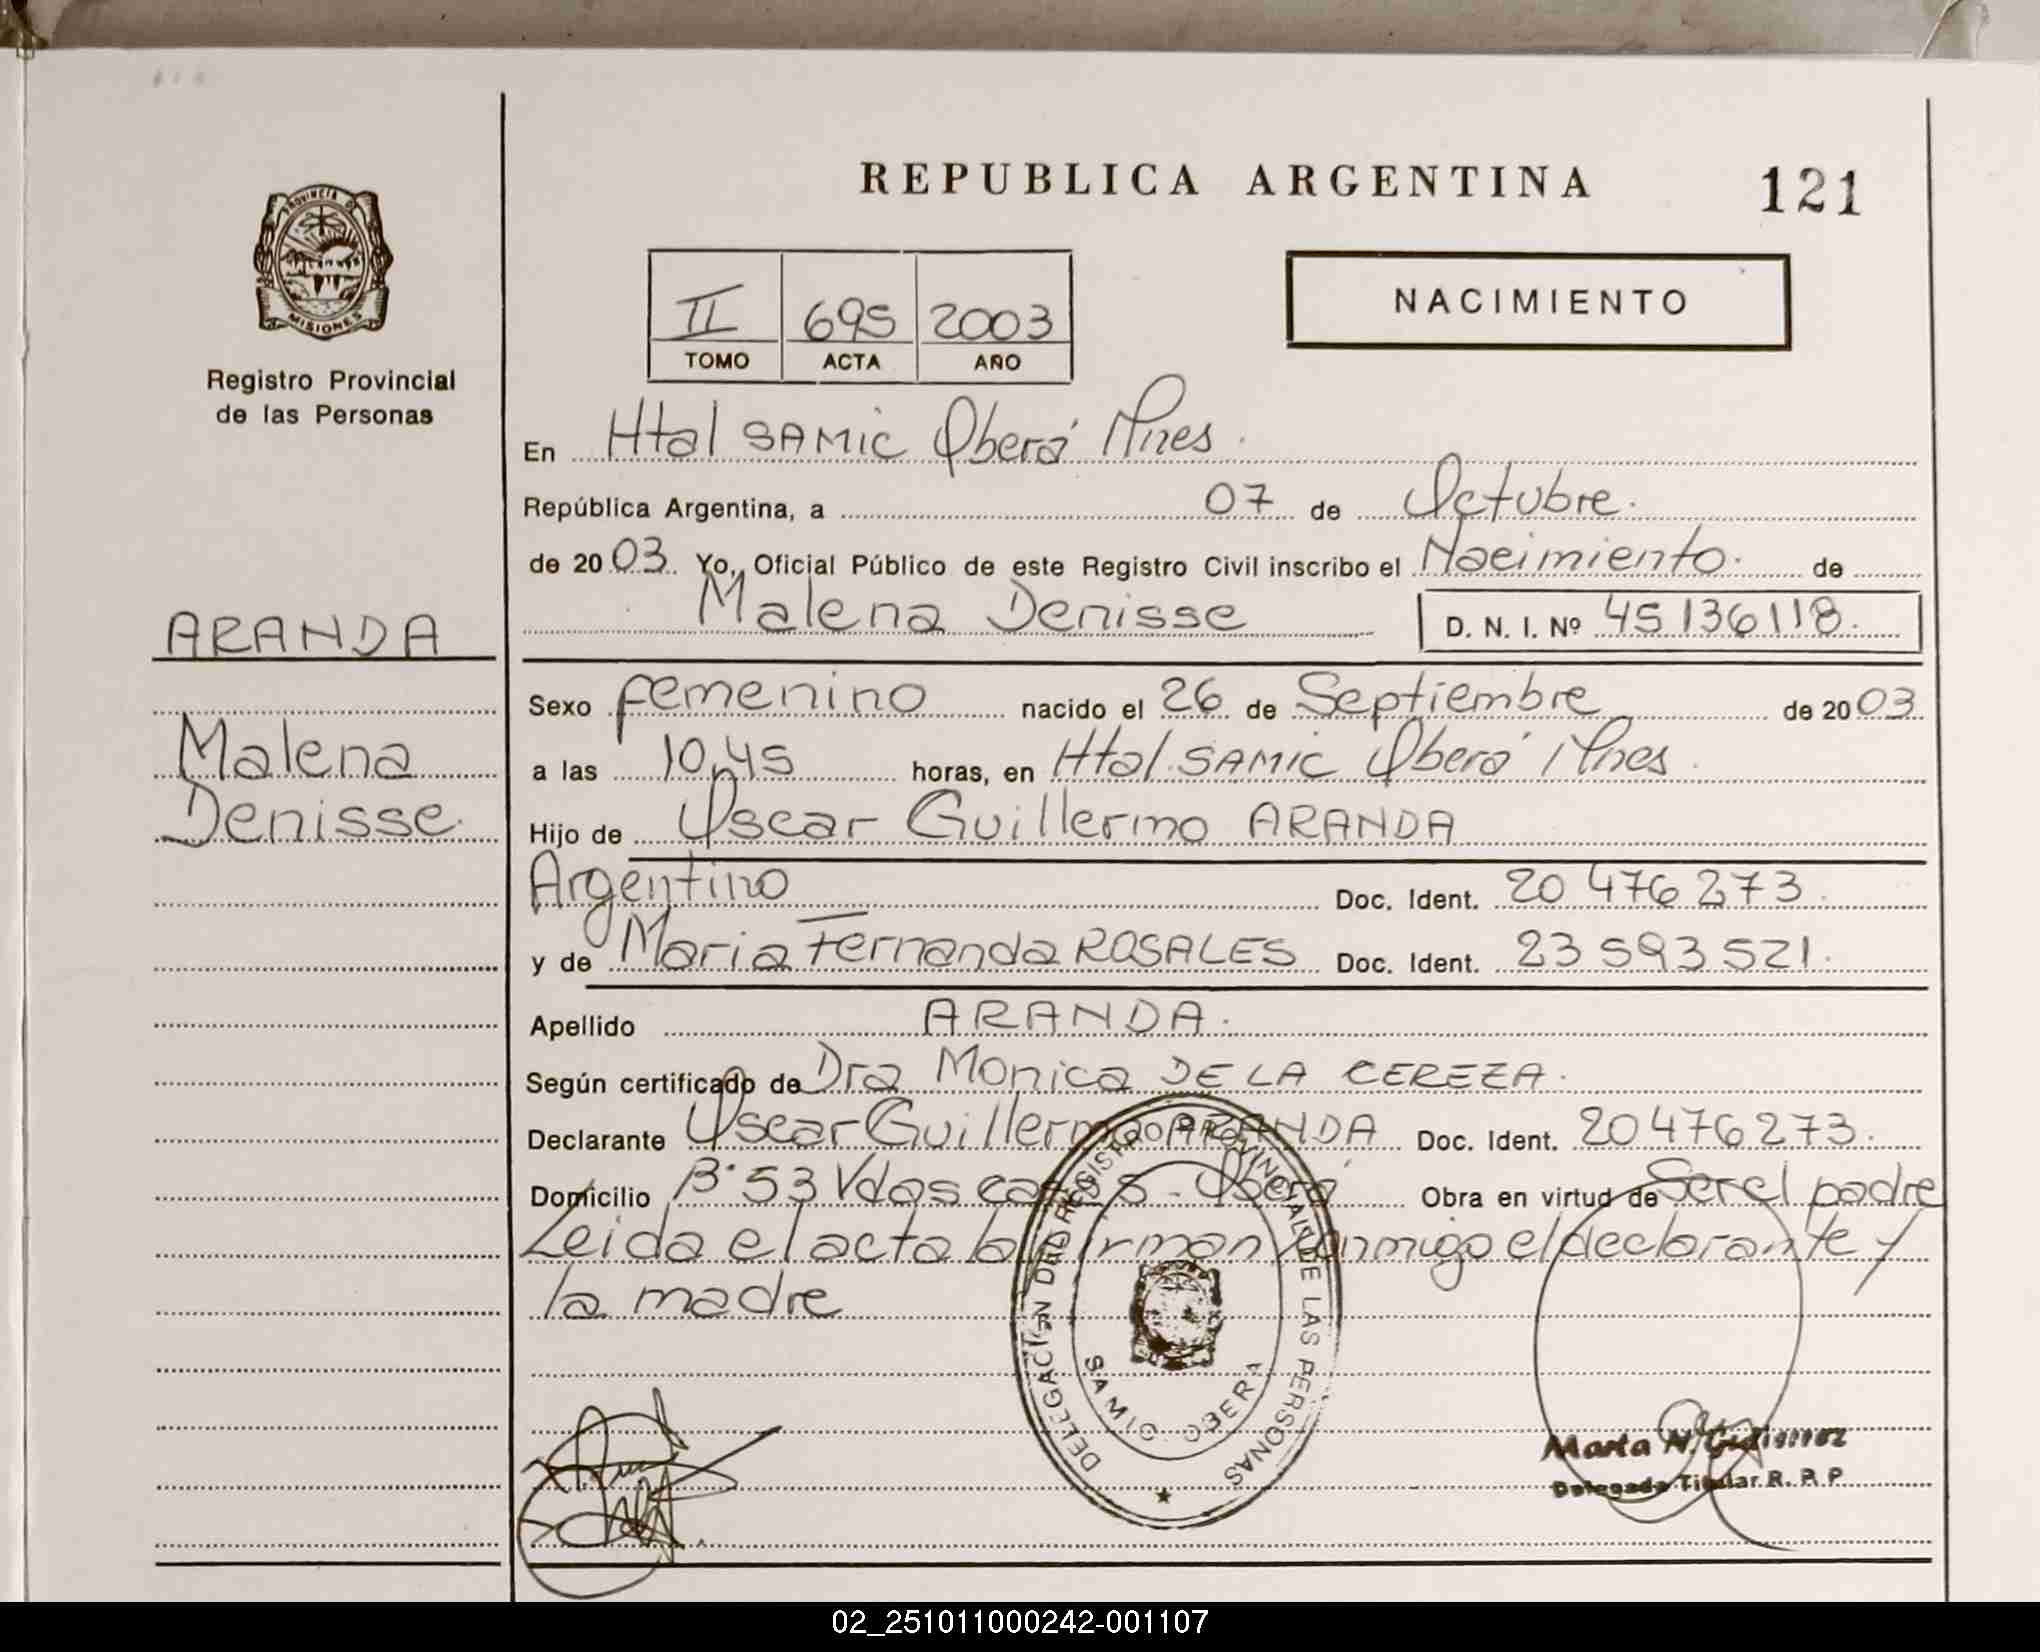 REPUBLICA ARGENTINA
121
PROVINCIA D
MISIONES
Registro Provincial
de las Personas
II 695 2003
TOMO ACTA AÑO
NACIMIENTO
En Htal SAMIC Oberá Mnes.
República Argentina, a 07 de Octubre.
de 2003. Yo, Oficial Público de este Registro Civil inscribo el Nacimiento. de
Malena Denisse D. N. I. Nº 45 136 118.
ARANDA
Malena
Denisse.
Sexo femenino nacido el 26 de Septiembre de 2003
a las 10,45 horas, en Htal. SAMIC Oberá Mnes.
Hijo de Oscar Guillermo ARANDA
Argentino Doc. Ident. 20 476 273.
y de Maria Fernanda ROSALES Doc. Ident. 23 593 521.
Apellido ARANDA.
Según certificado de Dra Monica DE LA CEREZA.
Declarante Oscar Guillermo ARANDA Doc. Ident. 20 476 273.
Domicilio B° 53 Vdas Oberá Obra en virtud de Ser el padre
Leida el acta la firman conmigo el declarante y
la madre
DELEGACIÓN DEL REGISTRO PROVINCIAL DE LAS PERSONAS
SAMIC OBERA
Marta N. Gutierrez
Delegada Titular R. P. P
02_251011000242-001107